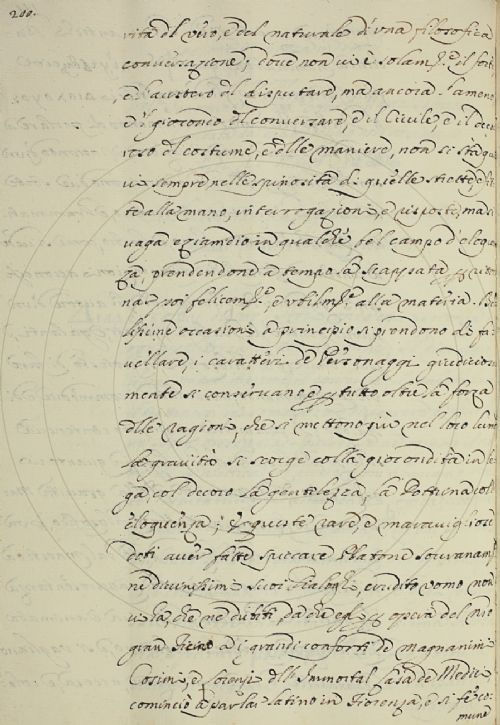 200.
rità del vero, e del naturale d'una filosofica
conversazione; dove non vi è solam.e il forte
e l'austero del disputare, ma ancora l'ameno
e 'l giocondo del conversare, e il Civile, e il
del costume, e delle maniere, non si sta qui
vi sempre nelle spinosità di quelle strette, e
te alla mano, interrogazioni, e risposte, ma si
vaga eziamdio in qualche bel campo d'eloquen
za, prendendone a tempo la scappata, per
nar poi felicem.e, e nobilm.e alla materia. Be
lissime occasioni a principio si prendono di fa
vellare, i caratteri de' Personaggi giudiciosa
mente si conservano, e per tutto oltre la forza
delle ragioni, che si mettono più nel loro lume
la gravità si scorge colla giocondità in le
ga col decoro la gentilezza, la Dottrina coll'
eloquenza; E queste rare, e maravigliose
doti aver fatte spiccare Platone sovranam.e
ne' divinissimi suoi Dialoghi, erudito uomo non
vi ha, che ne dubiti, da che per opera del mio
gran Ficino a i grandi conforti de' magnanimi
Cosimi, e Lorenzi dell' Immortal Casa de' Medici
cominciò a parlar latino in Fiorenza, e si fe' co-
mune